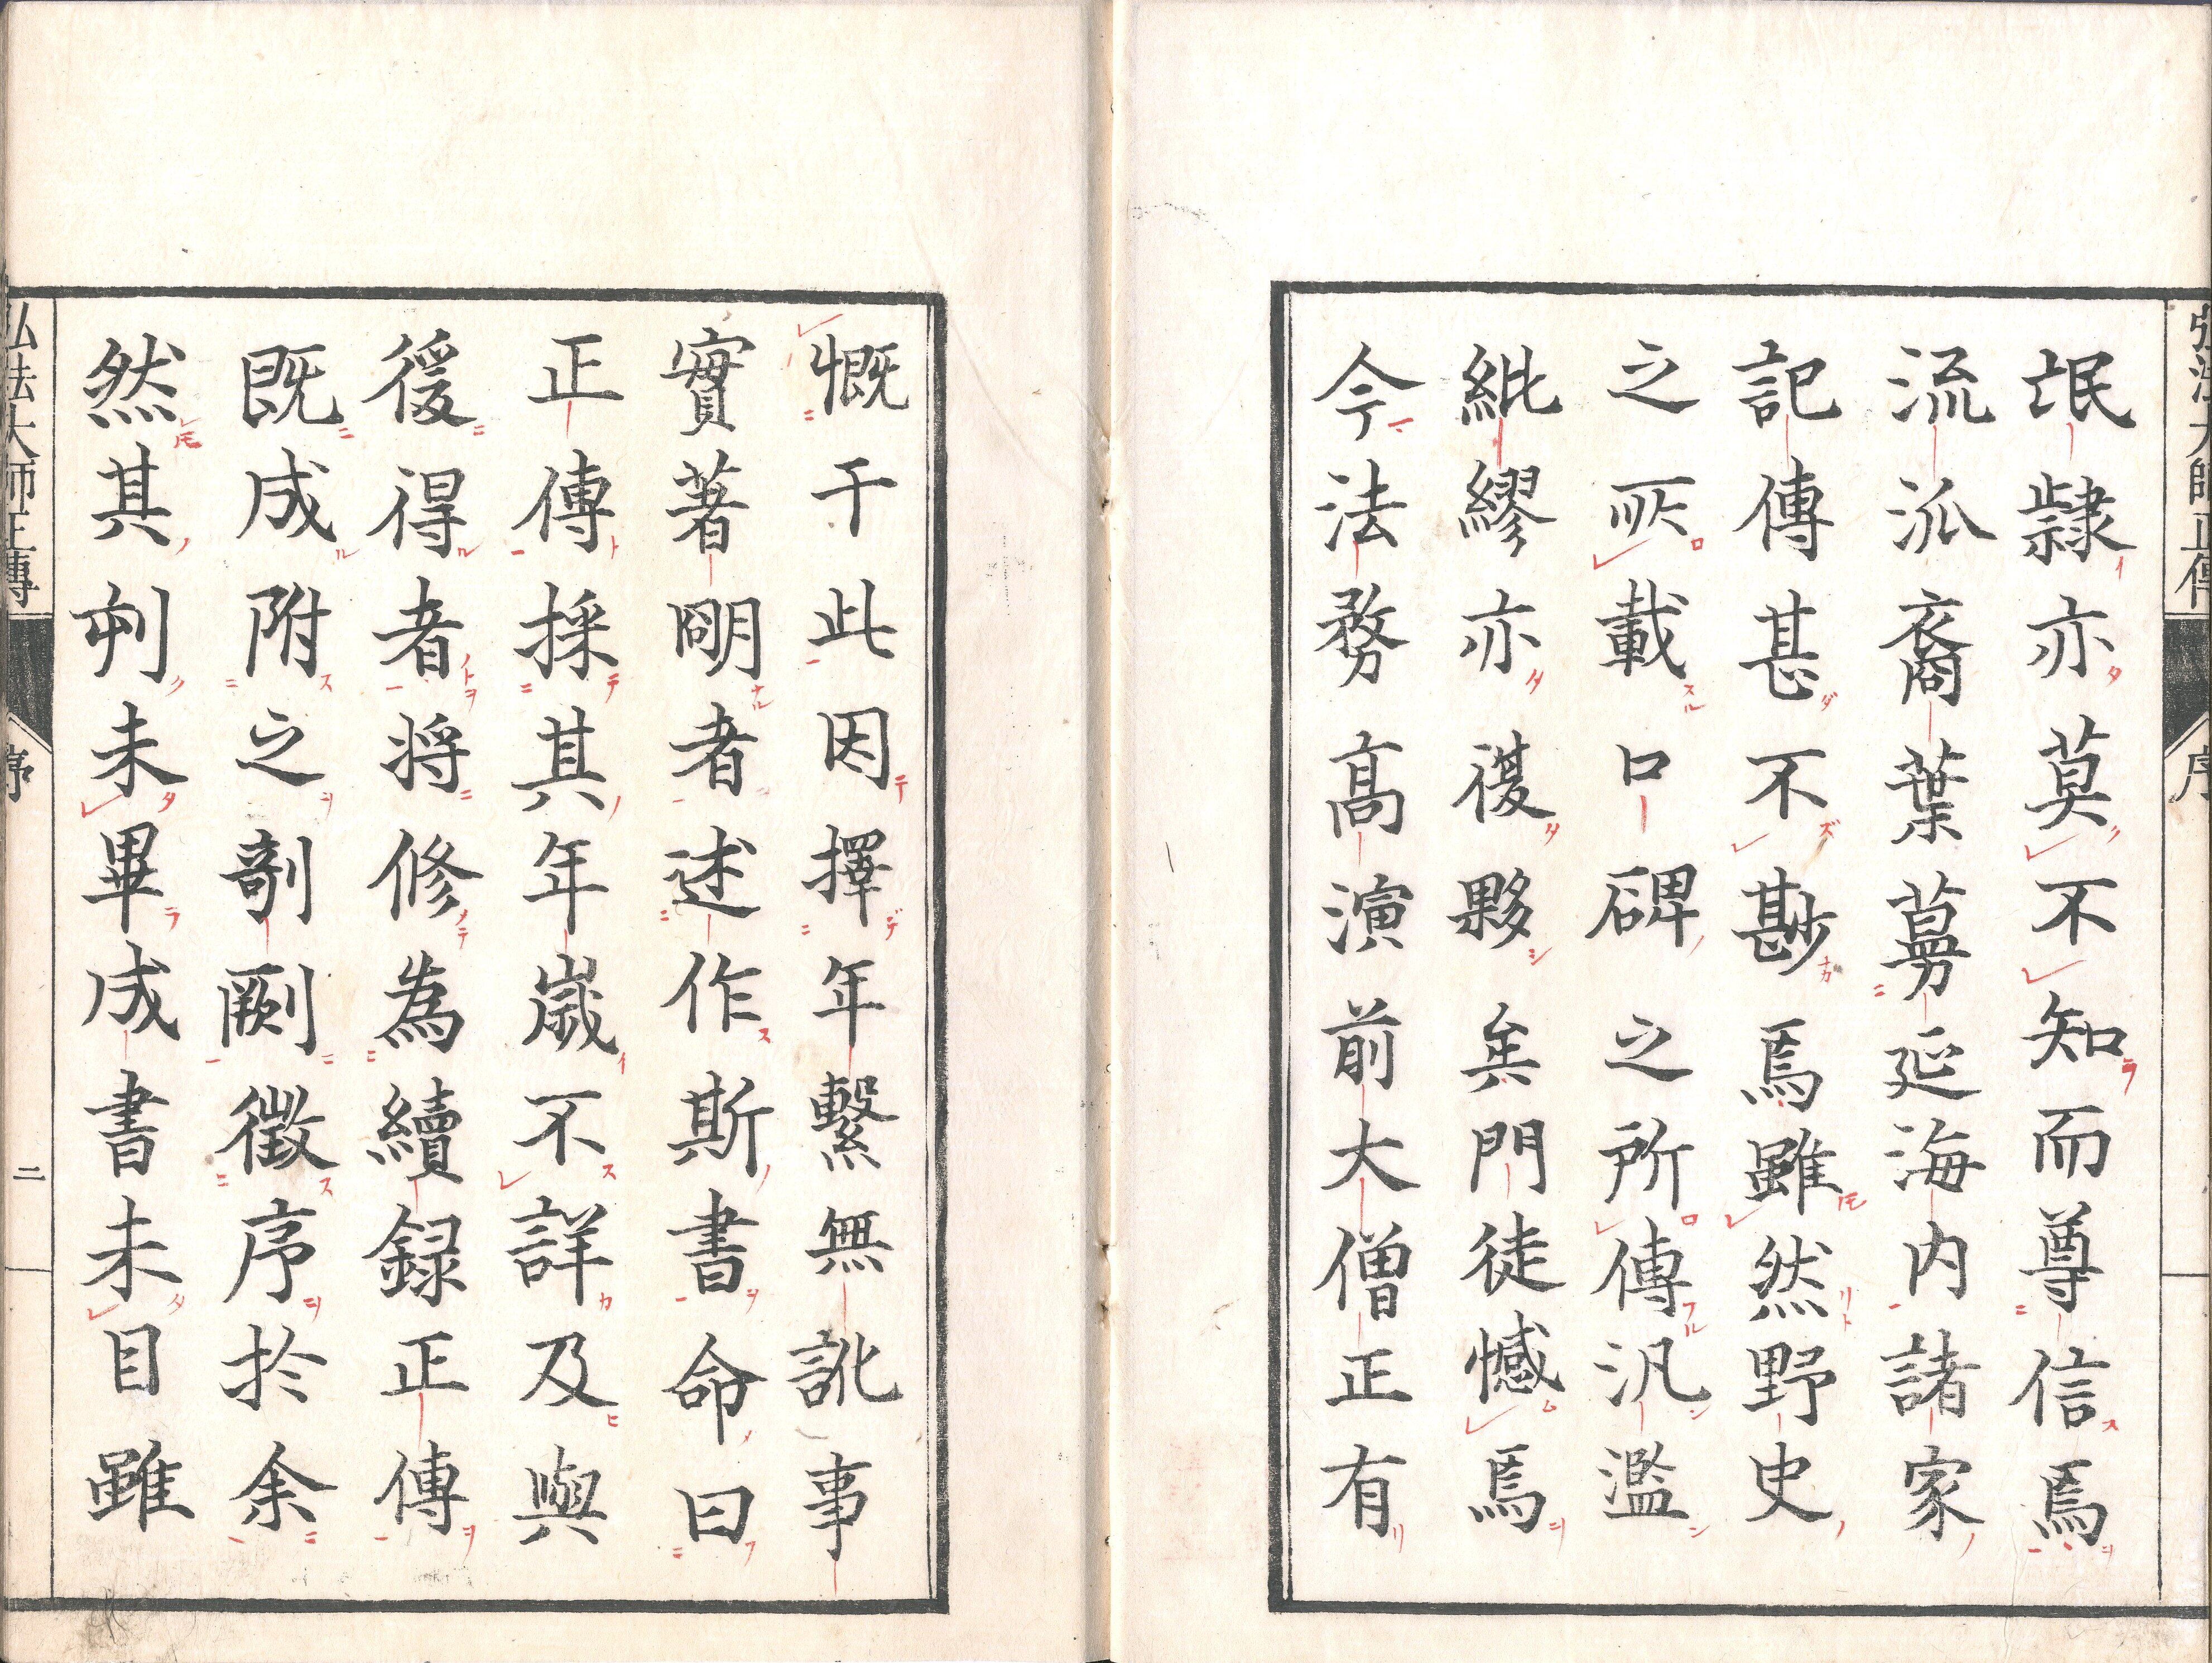 弘法大師正傳 序
氓隷亦莫不知而尊信焉
流派裔葉蕚延海内諸家
記傳甚不尠焉雖然野史
之所載口碑之所傳汎濫
紕繆亦復夥矣門徒憾焉
今法務高演前大僧正有
慨于此因擇年繋無訛事
實著明者述作斯書命曰
正傳採其年歳不詳及與
後得者將修為續録正傳
既成附之剞劂徵序於余
然其刋未畢成書未目雖
弘法大師正傳 序 二